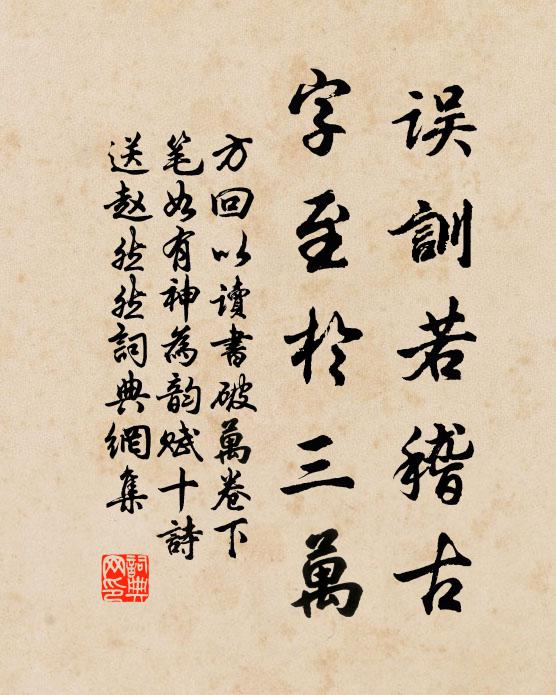 誤訓若稽古
字至於三萬
方回以讀書破萬卷下
笔如有神為韵赋十詩
送赵然然詞典網集
詞典网印